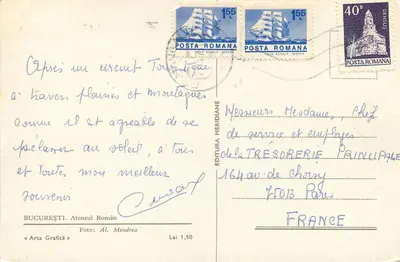 1.55 L
POSTA ROMANA
1.55 L
POSTA ROMANA
40B
DENSUS
POSTA ROMANA
Après un circuit Touristique
à travers plaines et montagnes
comme il est agréable de se
prélasser au soleil, à tous
et toutes mon meilleur
souvenir
BUCUREȘTI. Ateneul Român
Foto: Al. Mendrea
« Arta Grafică » Lei 1,50
EDITURA MERIDIANE
Messieurs Mesdames, Chef
de service et employés
de la TRÉSORERIE PRINCIPALE
164 av. de Choisy
75013 Paris
FRANCE